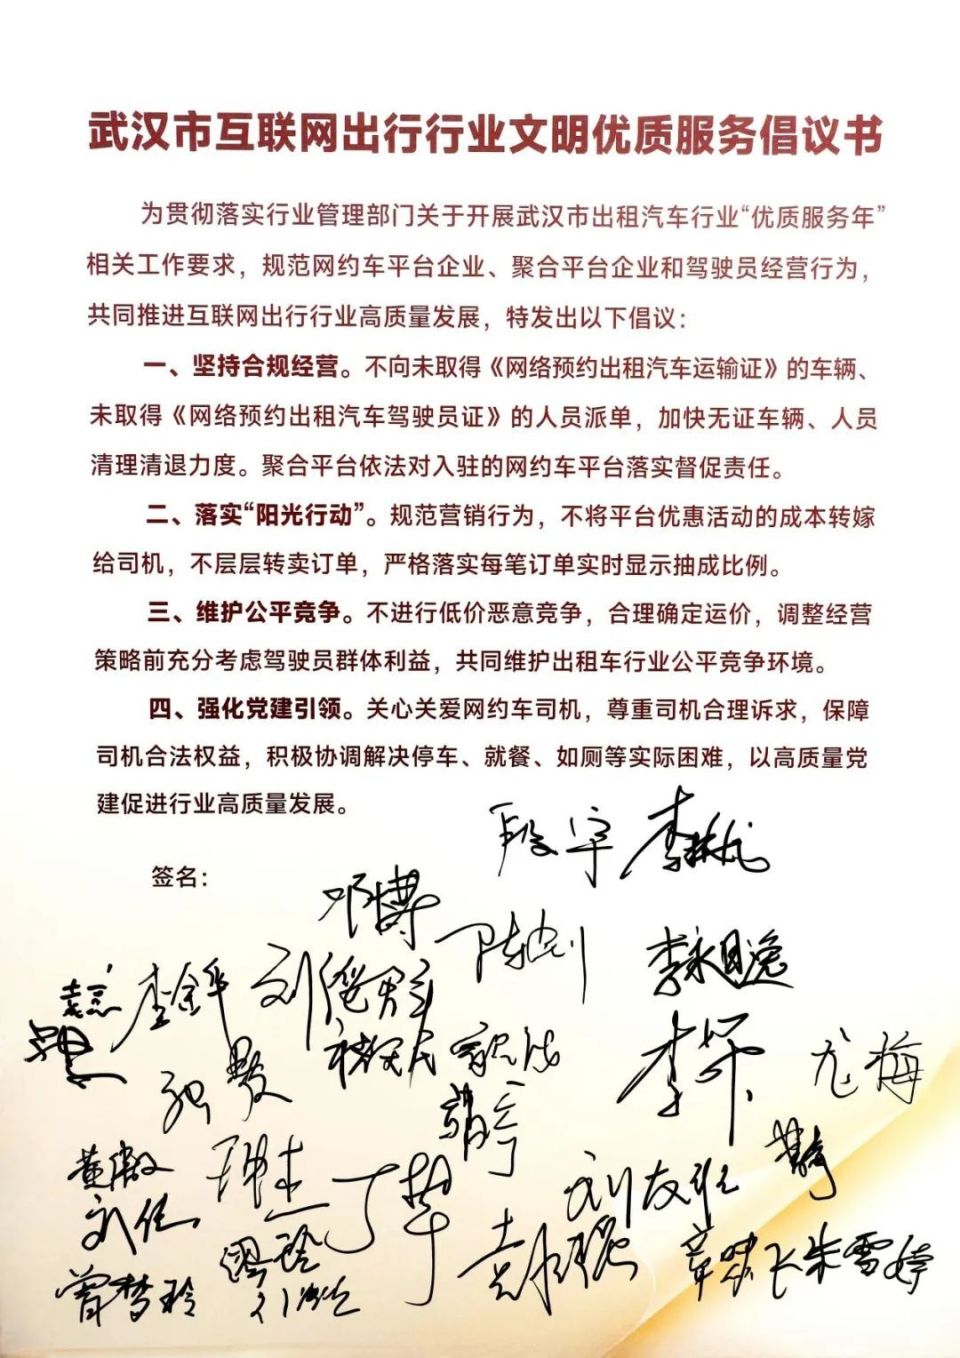 武汉市互联网出行行业文明优质服务倡议书
为贯彻落实行业管理部门关于开展武汉市出租汽车行业“优质服务年”
相关工作要求，规范网约车平台企业、聚合平台企业和驾驶员经营行为，
共同推进互联网出行行业高质量发展，特发出以下倡议：
一、坚持合规经营。不向未取得《网络预约出租汽车运输证》的车辆、
未取得《网络预约出租汽车驾驶员证》的人员派单，加快无证车辆、人员
清理清退力度。聚合平台依法对入驻的网约车平台落实督促责任。
二、落实“阳光行动”。规范营销行为，不将平台优惠活动的成本转嫁
给司机，不层层转卖订单，严格落实每笔订单实时显示抽成比例。
三、维护公平竞争。不进行低价恶意竞争，合理确定运价，调整经营
策略前充分考虑驾驶员群体利益，共同维护出租车行业公平竞争环境。
四、强化党建引领。关心关爱网约车司机，尊重司机合理诉求，保障
司机合法权益，积极协调解决停车、就餐、如厕等实际困难，以高质量党
建促进行业高质量发展。
段宇
签名：
邓博
李金华
尤梅
刘友旺
曾梦玲
朱雪婷